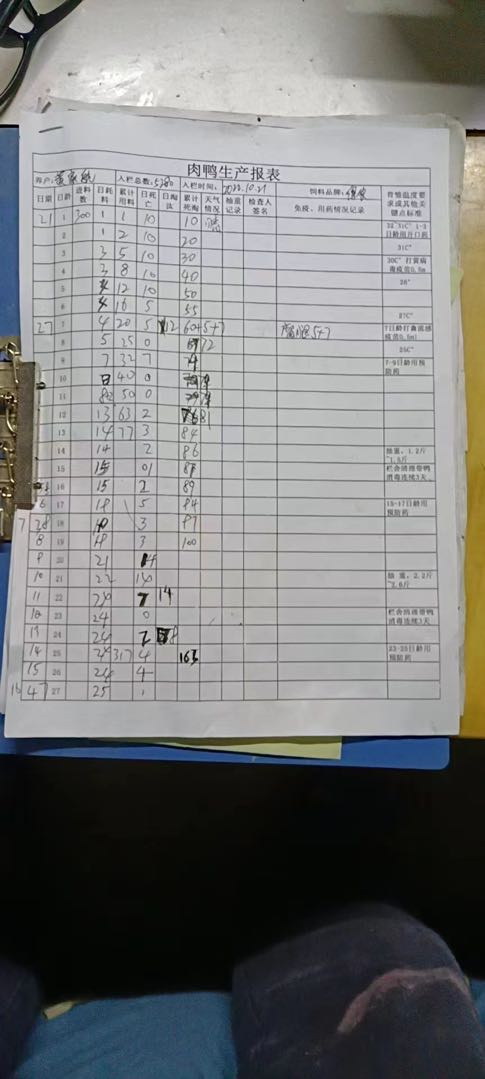 肉鸭生产报表
入栏总数: 5780 入栏时间: 2022.10.21 饲料品牌:
日期 日龄 进料数 日耗料 累计用料 日死亡 日淘汰 累计死淘 天气情况 抽重记录 检查人签名 免疫、用药情况记录 育雏温度要求或其他关键点标准
21 1 300 1 1 10 10 32-31C° 1-3日龄用开口药
2 1 2 10 20 31C°
3 3 5 10 30 30C° 打黄病毒疫苗0.8m
4 3 8 10 40 28°
5 12 10 50
6 4 16 5 55 27C°
27 7 4 20 5 12 60+5+7 5+7 7日龄打禽流感疫苗0.5ml
8 5 25 0 72 25C°
9 7 32 7 7-9日龄用预防药
10 40 0
11 50 0
12 13 63 2 81
13 14 77 3 84
14 14 2 86 抽重，1.2斤~1.5斤
15 15 01 87 栏舍清理带鸭消毒连续3天
16 15 2 89
6 17 18 5 94 15-17日龄用预防药
7 28 18 3 97
8 19 18 3 100
9 20 21 14
10 21 22 14 抽 重，2.2斤~2.6斤
11 22 24 7 14
23 24 0 栏舍清理带鸭消毒连续3天
13 24 24 7 8
14 25 24 317 4 163 23-25日龄用预防药
15 26 24 4
16 47 27 25 1